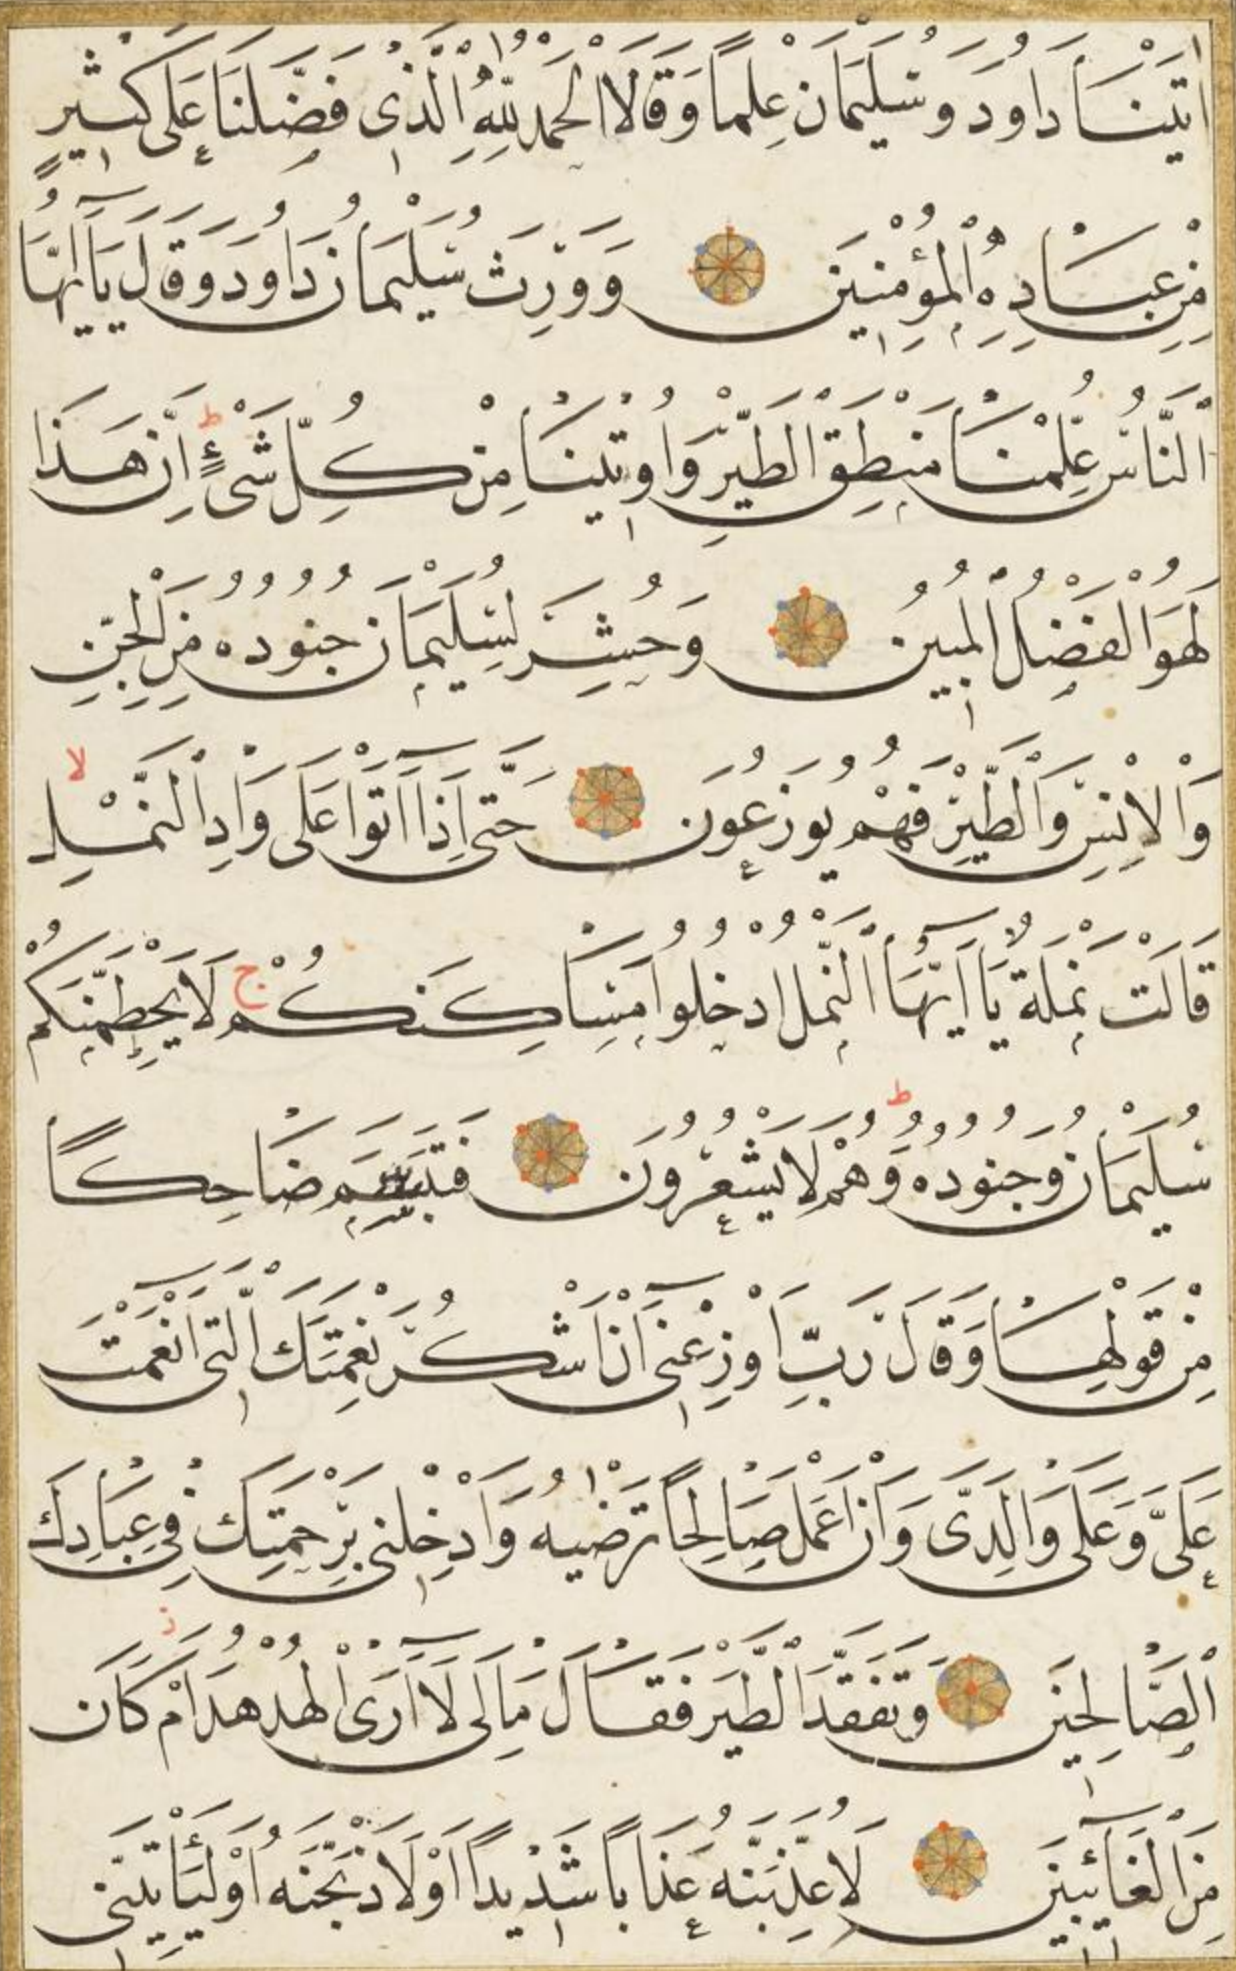 اٰتَيْنَا دَاوُدَ وَسُلَيْمَانَ عِلْمًا وَقَالَا الْحَمْدُ لِلّٰهِ الَّذِي فَضَّلَنَا عَلَى كَثِيرٍ
مِنْ عِبَادِهِ الْمُؤْمِنِينَ وَوَرِثَ سُلَيْمَانُ دَاوُدَ وَقَالَ يَآ اَيُّهَا
النَّاسُ عُلِّمْنَا مَنْطِقَ الطَّيْرِ وَاُوتِينَا مِنْ كُلِّ شَيْءٍ ط اِنَّ هَذَا
لَهُوَ الْفَضْلُ الْمُبِينُ وَحُشِرَ لِسُلَيْمَانَ جُنُودُهُ مِنَ الْجِنِّ
وَالْاِنْسِ وَالطَّيْرِ فَهُمْ يُوزَعُونَ حَتَّى اِذَآ اَتَوْا عَلَى وَادِ النَّمْلِ لا
قَالَتْ نَمْلَةٌ يَآ اَيُّهَا النَّمْلُ ادْخُلُوا مَسَاكِنَكُمْ ج لَا يَحْطِمَنَّكُمْ
سُلَيْمَانُ وَجُنُودُهُ ط وَهُمْ لَا يَشْعُرُونَ فَتَبَسَّمَ ضَاحِكًا
مِنْ قَوْلِهَا وَقَالَ رَبِّ اَوْزِعْنِي اَنْ اَشْكُرَ نِعْمَتَكَ الَّتِي اَنْعَمْتَ
عَلَيَّ وَعَلَى وَالِدَيَّ وَاَنْ اَعْمَلَ صَالِحًا تَرْضٰيهُ وَاَدْخِلْنِي بِرَحْمَتِكَ فِي عِبَادِكَ
الصَّالِحِينَ وَتَفَقَّدَ الطَّيْرَ فَقَالَ مَا لِيَ لَآ اَرَى الْهُدْهُدَ ز اَمْ كَانَ
مِنَ الْغَآئِبِينَ لَاُعَذِّبَنَّهُ عَذَابًا شَدِيدًا اَوْ لَاَذْبَحَنَّهُ اَوْ لَيَأْتِيَنِّي